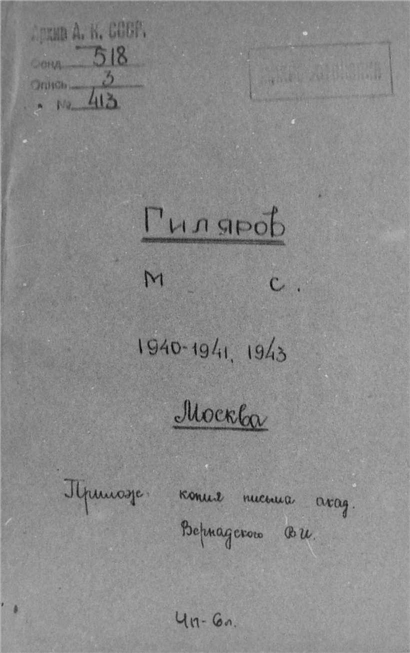 Архив А. Н. СССР.
Фонд 518
Опись 3
№ 413
Гиляров
М С.
1940-1941, 1943
Москва
Прилож. копия письма акад.
Вернадского В И.
6л.